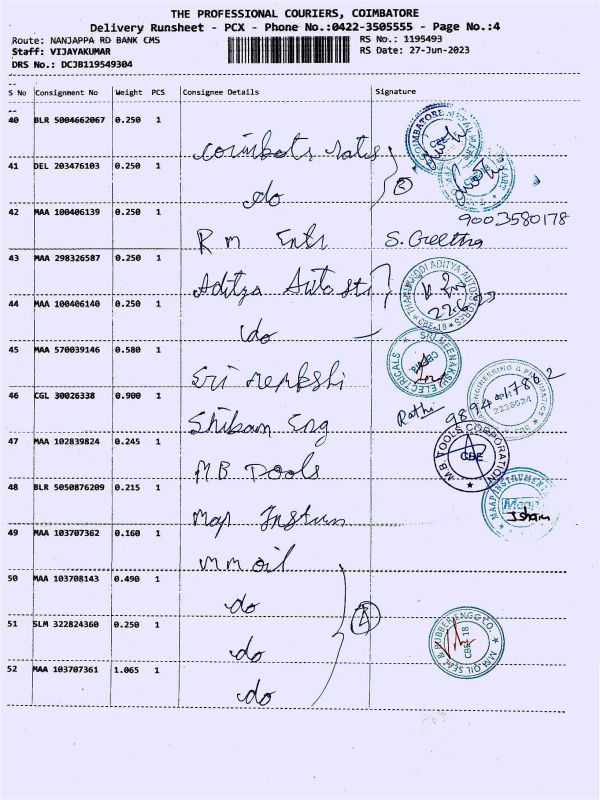 THE PROFESSIONAL COURIERS, COIMBATORE
Delivery Runsheet - PCX - Phone No.:0422-3505555 - Page No.:4
Route: NANJAPPA RD BANK CMS
RS No.: 1195493
Staff: VIJAYAKUMAR
RS Date: 27-Jun-2023
DRS No.: DCJB119549304
S No Consignment No Weight PCS Consignee Details Signature
40 BLR 5004662067 0.250 1
41 DEL 203476103 0.250 1
do
42 MAA 100406139 0.250 1
9003580178
R m Ents S. Geetha
43 MAA 298326587 0.250 1
Aditya Auto
44 MAA 100406140 0.250 1
do
THANUKKODI ADITYA AUTO STORES CBE-18
45 MAA 570039146 0.580 1
SRI MEENAKSHI ELECTRICALS
Sri
46 CGL 30026338 0.900 1
ENGINEERING & PNEUMATICS
Rathi
Shibam Eng
47 MAA 102839824 0.245 1
M.B TOOLS CORPORATION CBE
M.B Tools
48 BLR 5050876209 0.215 1
MAAP INSTRUMENT
Map Instrum
49 MAA 103707362 0.160 1
mm oil
50 MAA 103708143 0.490 1
do
51 SLM 322824360 0.250 1
do
M.M.OIL SEAL & RUBBER ENGG CO. CBE 18
52 MAA 103707361 1.065 1
do